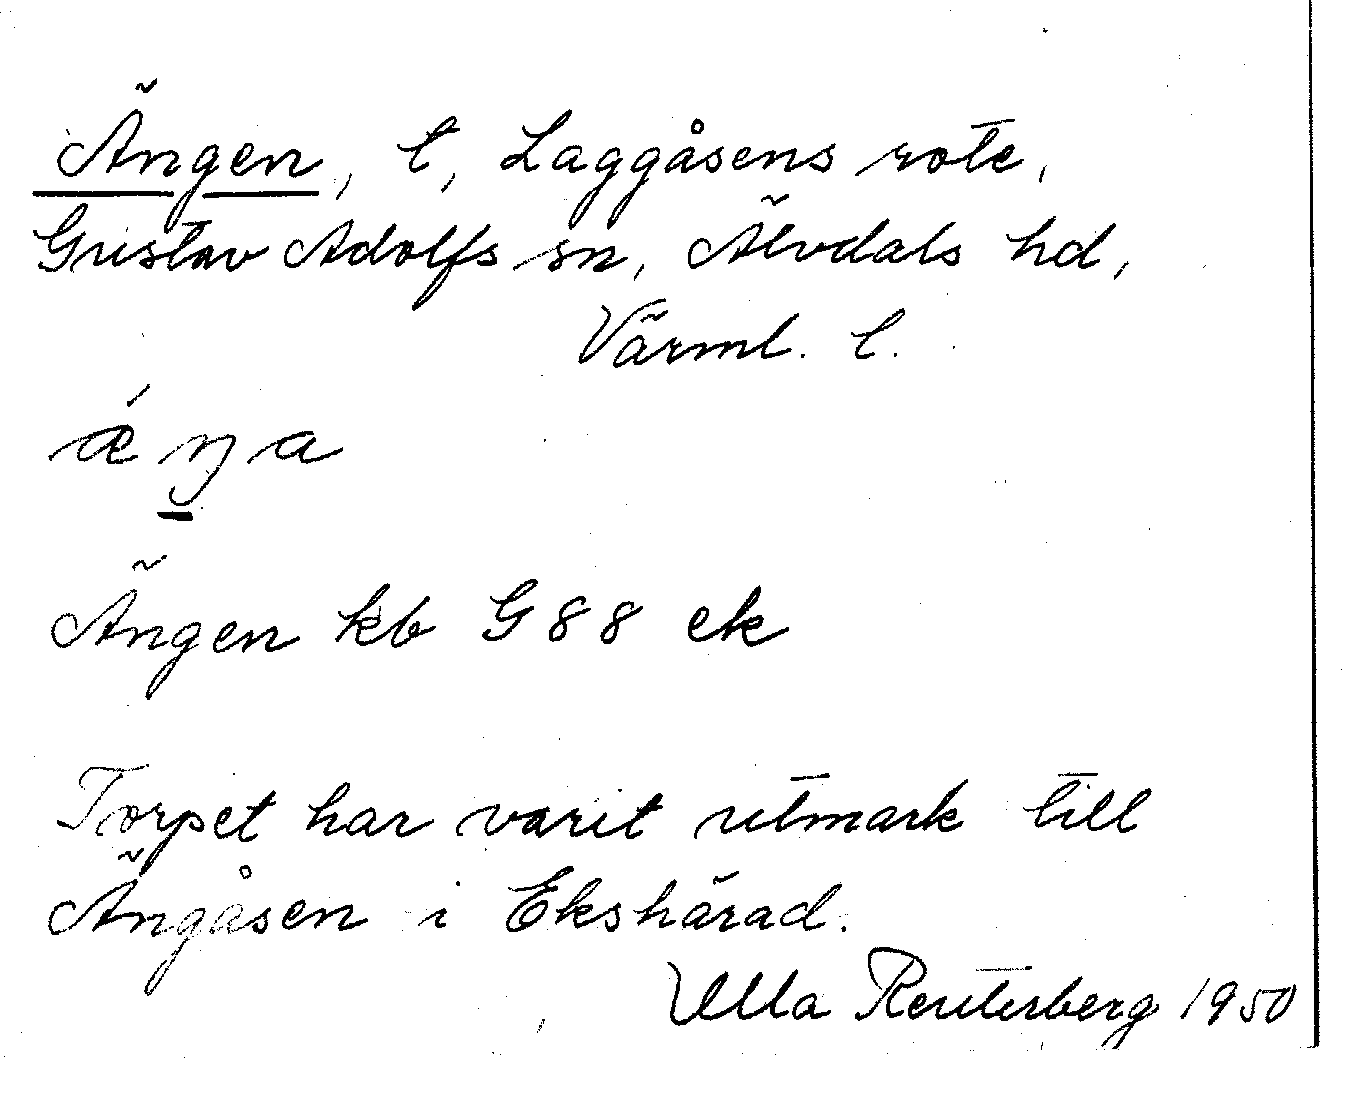 Ängen, t, Laggåsens rote,
Gustav Adolfs sn, Älvdals hd,
Värml. l.
ǽŋa
Ängen kb G 88 ek
Torpet har varit utmark till
Ängåsen i Ekshärad.
Ulla Reuterberg 1950